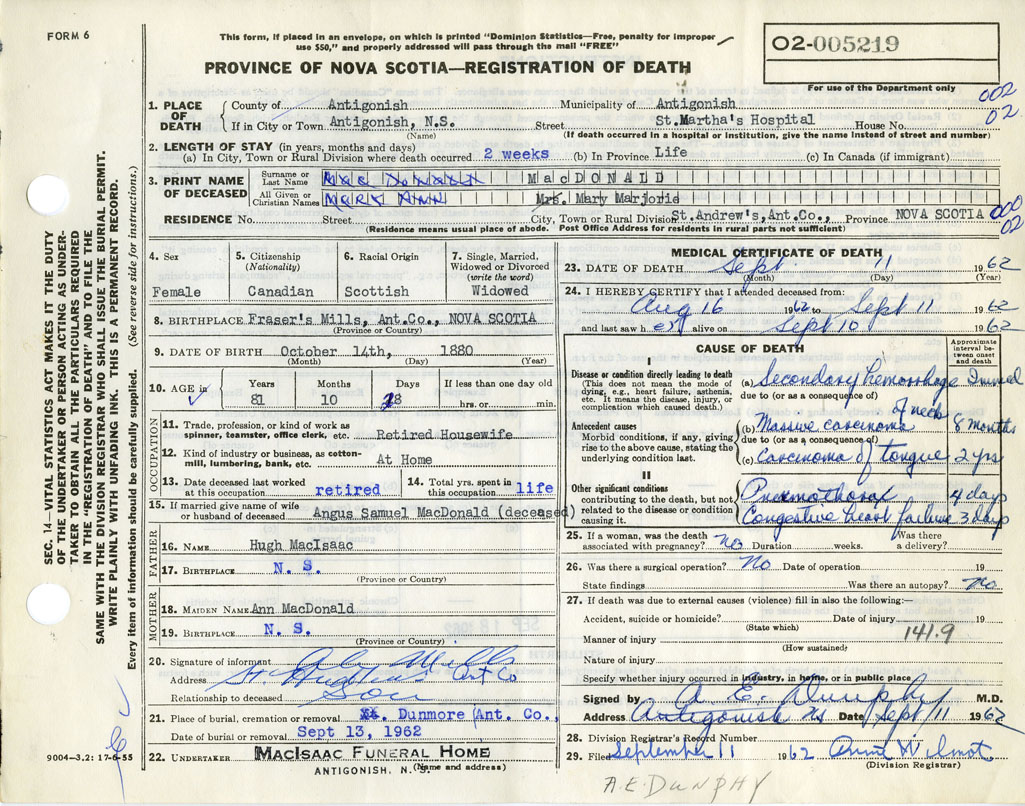 FORM 6
This form, if placed in an envelope, on which is printed "Dominion Statistics—Free, penalty for improper
use $50," and properly addressed will pass through the mail "FREE"
O2-005219
For use of the Department only
PROVINCE OF NOVA SCOTIA—REGISTRATION OF DEATH
002
02
1. PLACE OF DEATH
County of Antigonish Municipality of Antigonish
If in City or Town Antigonish, N.S. Street St.Martha's Hospital House No.
(Name) (If death occurred in a hospital or institution, give the name instead of street and number)
2. LENGTH OF STAY (in years, months and days)
(a) In City, Town or Rural Division where death occurred 2 weeks (b) In Province Life (c) In Canada (if immigrant)
3. PRINT NAME OF DECEASED
Surname or Last Name MacDonald MacDONALD
All Given or Christian Names Mary Ann Mrs. Mary Marjorie
RESIDENCE No. Street City, Town or Rural Division St.Andrew's,Ant.Co., Province NOVA SCOTIA
000
02
(Residence means usual place of abode. Post Office Address for residents in rural parts not sufficient)
SEC. 14—VITAL STATISTICS ACT MAKES IT THE DUTY
OF THE UNDERTAKER OR PERSON ACTING AS UNDER-
TAKER TO OBTAIN ALL THE PARTICULARS REQUIRED
IN THE "REGISTRATION OF DEATH" AND TO FILE THE
SAME WITH THE DIVISION REGISTRAR WHO SHALL ISSUE THE BURIAL PERMIT.
WRITE PLAINLY WITH UNFADING INK. THIS IS A PERMANENT RECORD.
Every item of information should be carefully supplied. (See reverse side for instructions.)
4. Sex
Female
5. Citizenship
(Nationality)
Canadian
6. Racial Origin
Scottish
7. Single, Married,
Widowed or Divorced
(write the word)
Widowed
8. BIRTHPLACE Fraser's Mills, Ant.Co., NOVA SCOTIA
(Province or Country)
9. DATE OF BIRTH October 14th, 1880
(Month) (Day) (Year)
10. AGE in
Years Months Days If less than one day old
81 10 28 hrs. or min.
OCCUPATION
11. Trade, profession, or kind of work as
spinner, teamster, office clerk, etc. Retired Housewife
12. Kind of industry or business, as cotton-
mill, lumbering, bank, etc. At Home
13. Date deceased last worked
at this occupation retired
14. Total yrs. spent in
this occupation life
15. If married give name of wife
or husband of deceased Angus Samuel MacDonald (deceased)
FATHER
16. NAME Hugh MacIsaac
17. BIRTHPLACE N. S.
(Province or Country)
MOTHER
18. MAIDEN NAME Ann MacDonald
19. BIRTHPLACE N. S.
(Province or Country)
20. Signature of informant
Address St. Ant Co
Relationship to deceased Son
21. Place of burial, cremation or removal Dunmore (Ant. Co.,
Date of burial or removal Sept 13, 1962
22. UNDERTAKER MacIsaac Funeral Home
ANTIGONISH, N. S. (Name and address)
9004—3.2: 17-6-55
MEDICAL CERTIFICATE OF DEATH
23. DATE OF DEATH Sept. 11 1962
(Month) (Day) (Year)
24. I HEREBY CERTIFY that I attended deceased from:
Aug 16 1962 to Sept 11 1962
and last saw her alive on Sept 10 1962
CAUSE OF DEATH
Approximate
interval be-
tween onset
and death
I
Disease or condition directly leading to death
(This does not mean the mode of
dying, e.g., heart failure, asthenia,
etc. It means the disease, injury, or
complication which caused death.)
(a) Secondary hemorrhage Immed
due to (or as a consequence of)
of neck
Antecedent causes
Morbid conditions, if any, giving
rise to the above cause, stating the
underlying condition last.
(b) Massive carcinoma 8 months
due to (or as a consequence of)
(c) Carcinoma of tongue 2 yrs
II
Other significant conditions
contributing to the death, but not
related to the disease or condition
causing it.
Pneumothorax 4 days
Congestive heart failure 3 days
25. If a woman, was the death
associated with pregnancy? No Duration weeks. Was there
a delivery?
26. Was there a surgical operation? No Date of operation 19
State findings Was there an autopsy? No
27. If death was due to external causes (violence) fill in also the following:—
Accident, suicide or homicide? Date of injury 19
(State which)
141.9
Manner of injury
(How sustained)
Nature of injury
Specify whether injury occurred in industry, in home, or in public place
Signed by A E. Dunphy M.D.
Address Antigonish NS Date Sept 11 1962
28. Division Registrar's Record Number
29. Filed September 11 1962 Ann Wilmot
(Division Registrar)
A.E. DUNPHY